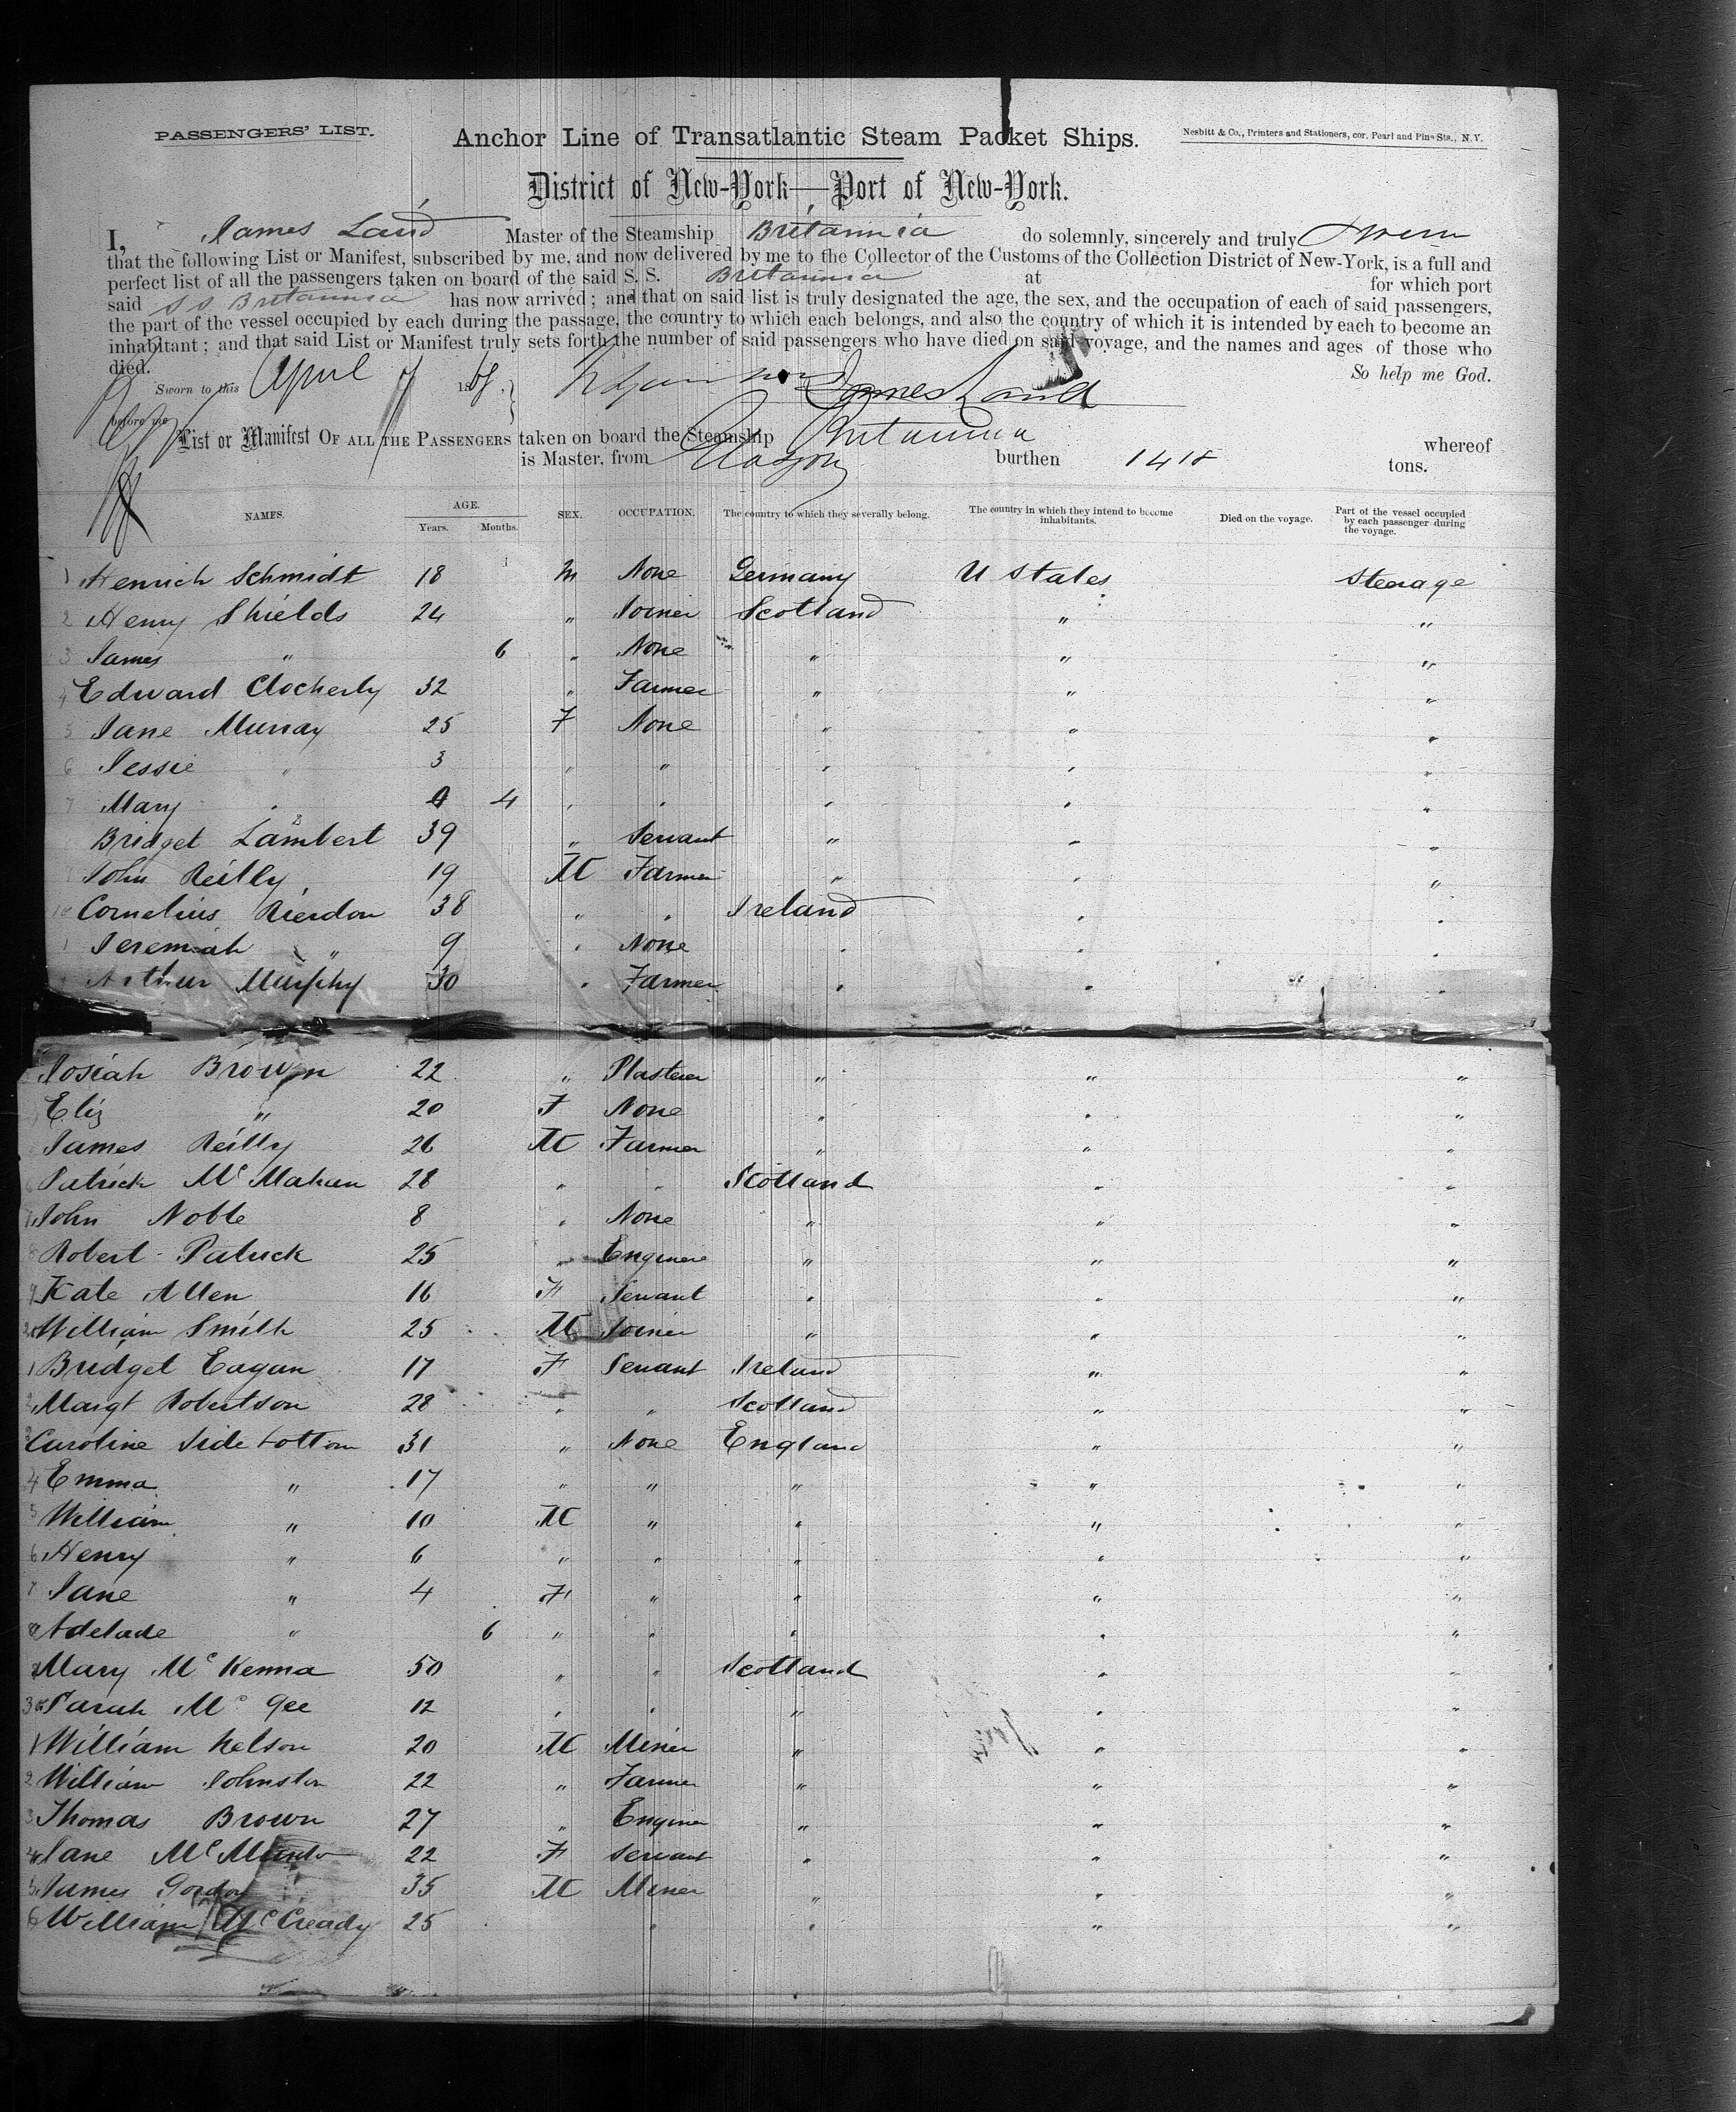 PASSENGERS' LIST.
Anchor Line of Transatlantic Steam Packet Ships.
Nesbitt & Co., Printers and Stationers, cor. Pearl and Pine Sts., N. Y.
District of New-York—Port of New-York.
I, James Laird Master of the Steamship Britannia do solemnly, sincerely and truly Swear
that the following List or Manifest, subscribed by me, and now delivered by me to the Collector of the Customs of the Collection District of New-York, is a full and
perfect list of all the passengers taken on board of the said S. S. Britannia at for which port
said S S Britannia has now arrived; and that on said list is truly designated the age, the sex, and the occupation of each of said passengers,
the part of the vessel occupied by each during the passage, the country to which each belongs, and also the country of which it is intended by each to become an
inhabitant; and that said List or Manifest truly sets forth the number of said passengers who have died on said voyage, and the names and ages of those who
died.
So help me God.
Sworn to this April 7 186
James Laird
before me
List or Manifest OF ALL THE PASSENGERS taken on board the Steamship Britannia whereof
is Master, from Glasgow burthen 1418 tons.
NAMES. AGE. Years. Months. SEX. OCCUPATION. The country to which they severally belong. The country in which they intend to become inhabitants. Died on the voyage. Part of the vessel occupied by each passenger during the voyage.
1 Henrich Schmidt 18 M None Germany U States Steerage
2 Henry Shields 24 " Joiner Scotland " "
3 James " 6 " None " " "
4 Edward Clocherty 32 " Farmer " " "
5 Jane Murray 25 F None " " "
6 Jessie " 3 " " " " "
7 Mary " 4 " " " " "
Bridget Lambert 39 " Servant " " "
John Reilly 19 M Farmer " " "
10 Cornelius Rierdon 38 " " Ireland " "
1 Jeremiah " 9 " None " " "
Arthur Murphy 30 " Farmer " " "
Josiah Brown 22 " Plasterer " " "
Eliz " 20 F None " " "
James Reilly 26 M Farmer " " "
6 Patrick McMahan 28 " " Scotland " "
7 John Noble 8 " None " " "
8 Robert Patrick 25 " Engineer " " "
9 Kate Allen 16 F Servant " " "
20 William Smith 25 M Joiner " " "
1 Bridget Eagan 17 F Servant Ireland " "
2 Margt Robertson 28 " " Scotland " "
3 Caroline Sidebottom 31 " None England " "
4 Emma " 17 " " " " "
5 William " 10 M " " " "
6 Henry " 6 " " " " "
7 Jane " 4 F " " " "
8 Adelade " 6 " " " " "
9 Mary McKenna 50 " " Scotland " "
30 Sarah McGee 12 " " " " "
1 William Nelson 20 M Miner " " "
2 William Johnston 22 " Farmer " " "
3 Thomas Brown 27 " Engineer " " "
4 Jane 22 F Servant " " "
5 James Gordon 35 M Miner " " "
6 William McCready 25 " " " "